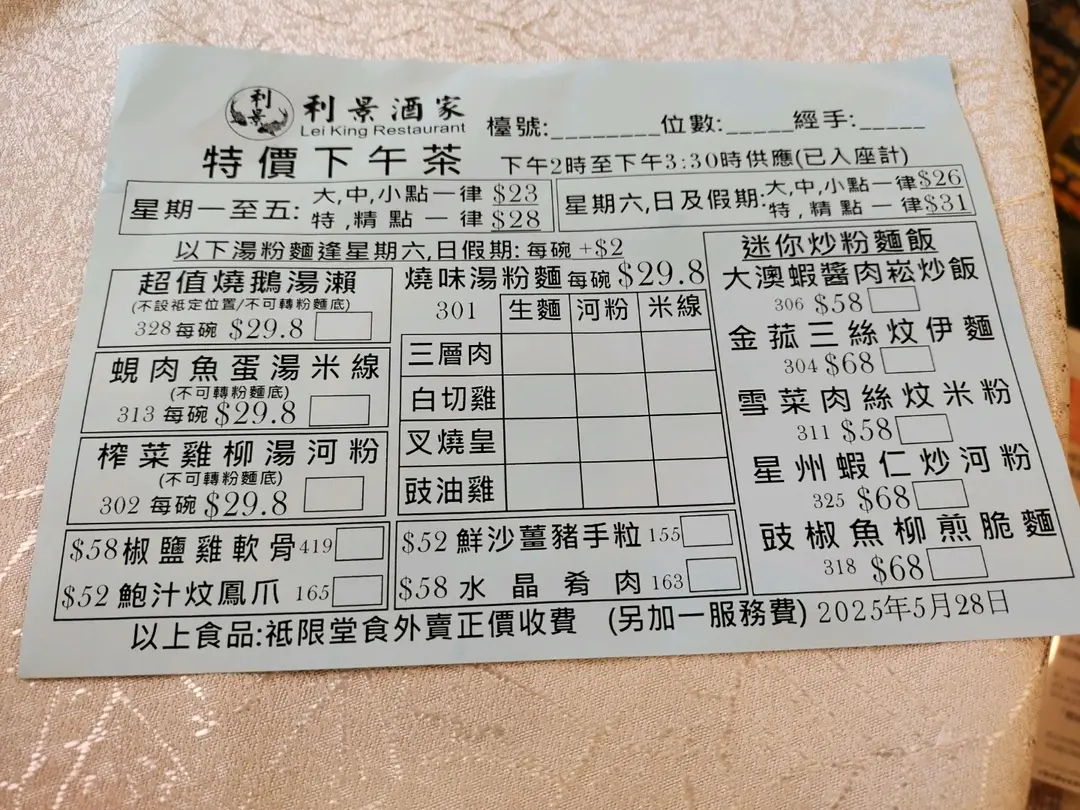 利景
利景酒家
Lei King Restaurant
檯號:________位數:_____經手:_____
特價下午茶 下午2時至下午3:30時供應(已入座計)
星期一至五: 大,中,小點一律 $23
特,精點一律 $28
星期六,日及假期: 大,中,小點一律 $26
特,精點一律 $31
以下湯粉麵逢星期六,日假期: 每碗 +$2
超值燒鵝湯瀨
(不設祗定位置/不可轉粉麵底)
328 每碗 $29.8
蜆肉魚蛋湯米線
(不可轉粉麵底)
313 每碗 $29.8
榨菜雞柳湯河粉
(不可轉粉麵底)
302 每碗 $29.8
燒味湯粉麵 每碗 $29.8
301 生麵 河粉 米線
三層肉
白切雞
叉燒皇
豉油雞
迷你炒粉麵飯
大澳蝦醬肉崧炒飯
306 $58
金菇三絲炆伊麵
304 $68
雪菜肉絲炆米粉
311 $58
星州蝦仁炒河粉
325 $68
豉椒魚柳煎脆麵
318 $68
$58 椒鹽雞軟骨 419
$52 鮑汁炆鳳爪 165
$52 鮮沙薑豬手粒 155
$58 水晶肴肉 163
以上食品:祗限堂食外賣正價收費 (另加一服務費) 2025年5月28日